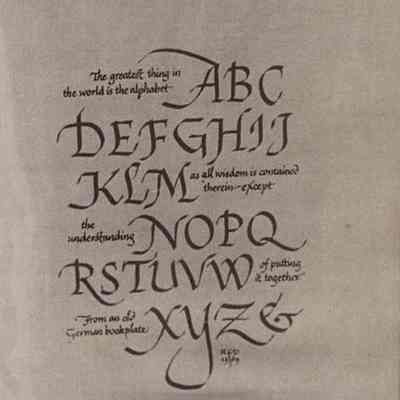 The greatest thing in
the world is the alphabet
ABC
DEFGHIJ
KLM
as all wisdom is contained
therein—except
the
understanding
NOPQ
RSTUVW
of putting
it together
From an old
German bookplate
XYZ&